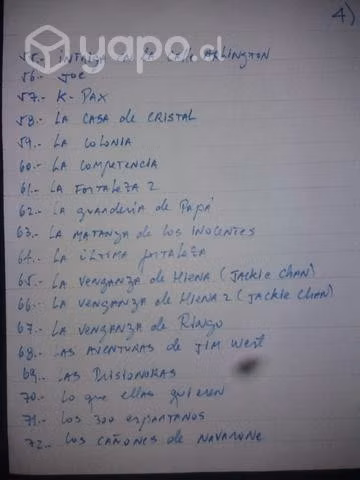 4)
yapo.cl
55.- INTRIGA en la calle ARLINGTON
56.- JOE
57.- K-PAX
58.- LA CASA de CRISTAL
59.- LA COLONIA
60.- LA COMPETENCIA
61.- LA FORTALEZA 2
62.- LA guardería de Papá
63.- LA MATANZA de los INOCENTES
64.- LA ÚLTIMA fortaleza
65.- LA VENGANZA de HIENA (JACKIE CHAN)
66.- LA VENGANZA de HIENA 2 (JACKIE CHAN)
67.- LA VENGANZA de RINGO
68.- LAS AVENTURAS de JIM WEST
69.- LAS PRISIONERAS
70.- Lo que ellas quieren
71.- LOS 300 espartanos
72.- LOS CAÑONES de NAVARONE